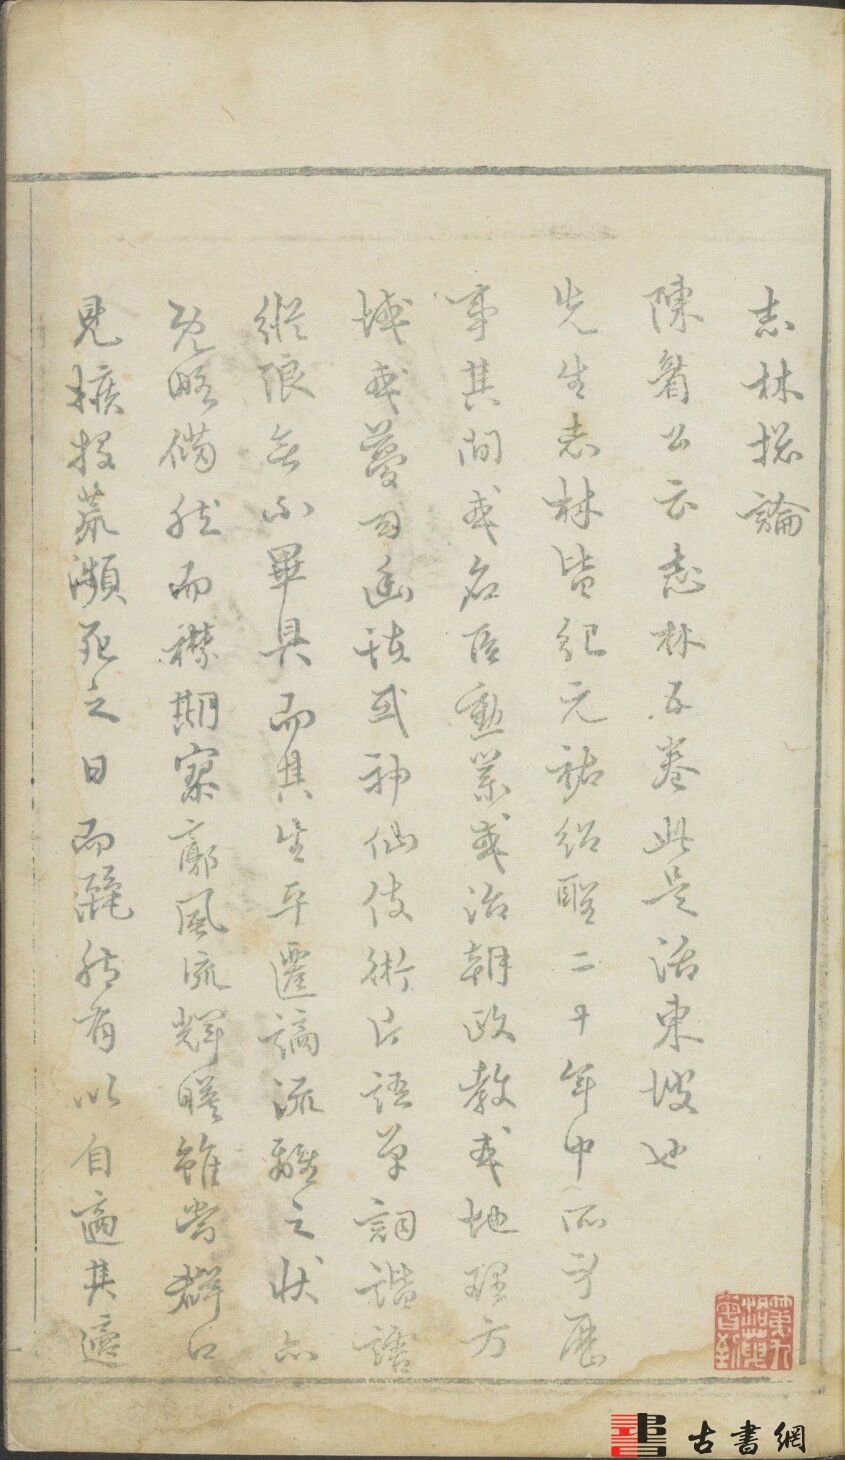 志林揔論
陳眉公云志林五卷此是活東坡也
先生志林皆紀元祐紹聖二十年中所身歷
事其間或名臣勳業或治朝政教或地理方
域或夢幻幽怪或神仙伎術片語單詞諧謔
縱浪無不畢具而其生平遷謫流離之狀亦
既略備然而襟期寥廓風流輝映雖當群口
見擯投荒瀕死之日而灑然有以自適其適
古書網